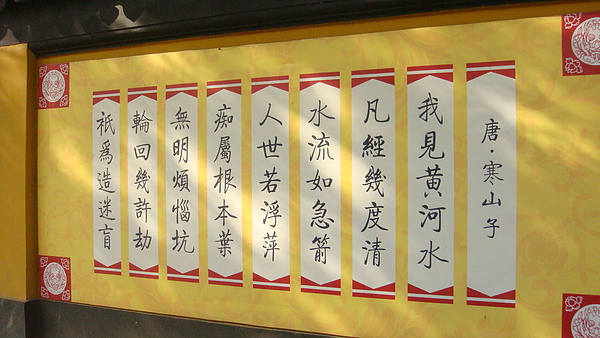 唐·寒山子
我見黃河水
凡經幾度清
水流如急箭
人世若浮萍
痴屬根本葉
無明煩惱坑
輪回幾許劫
祇爲造迷盲